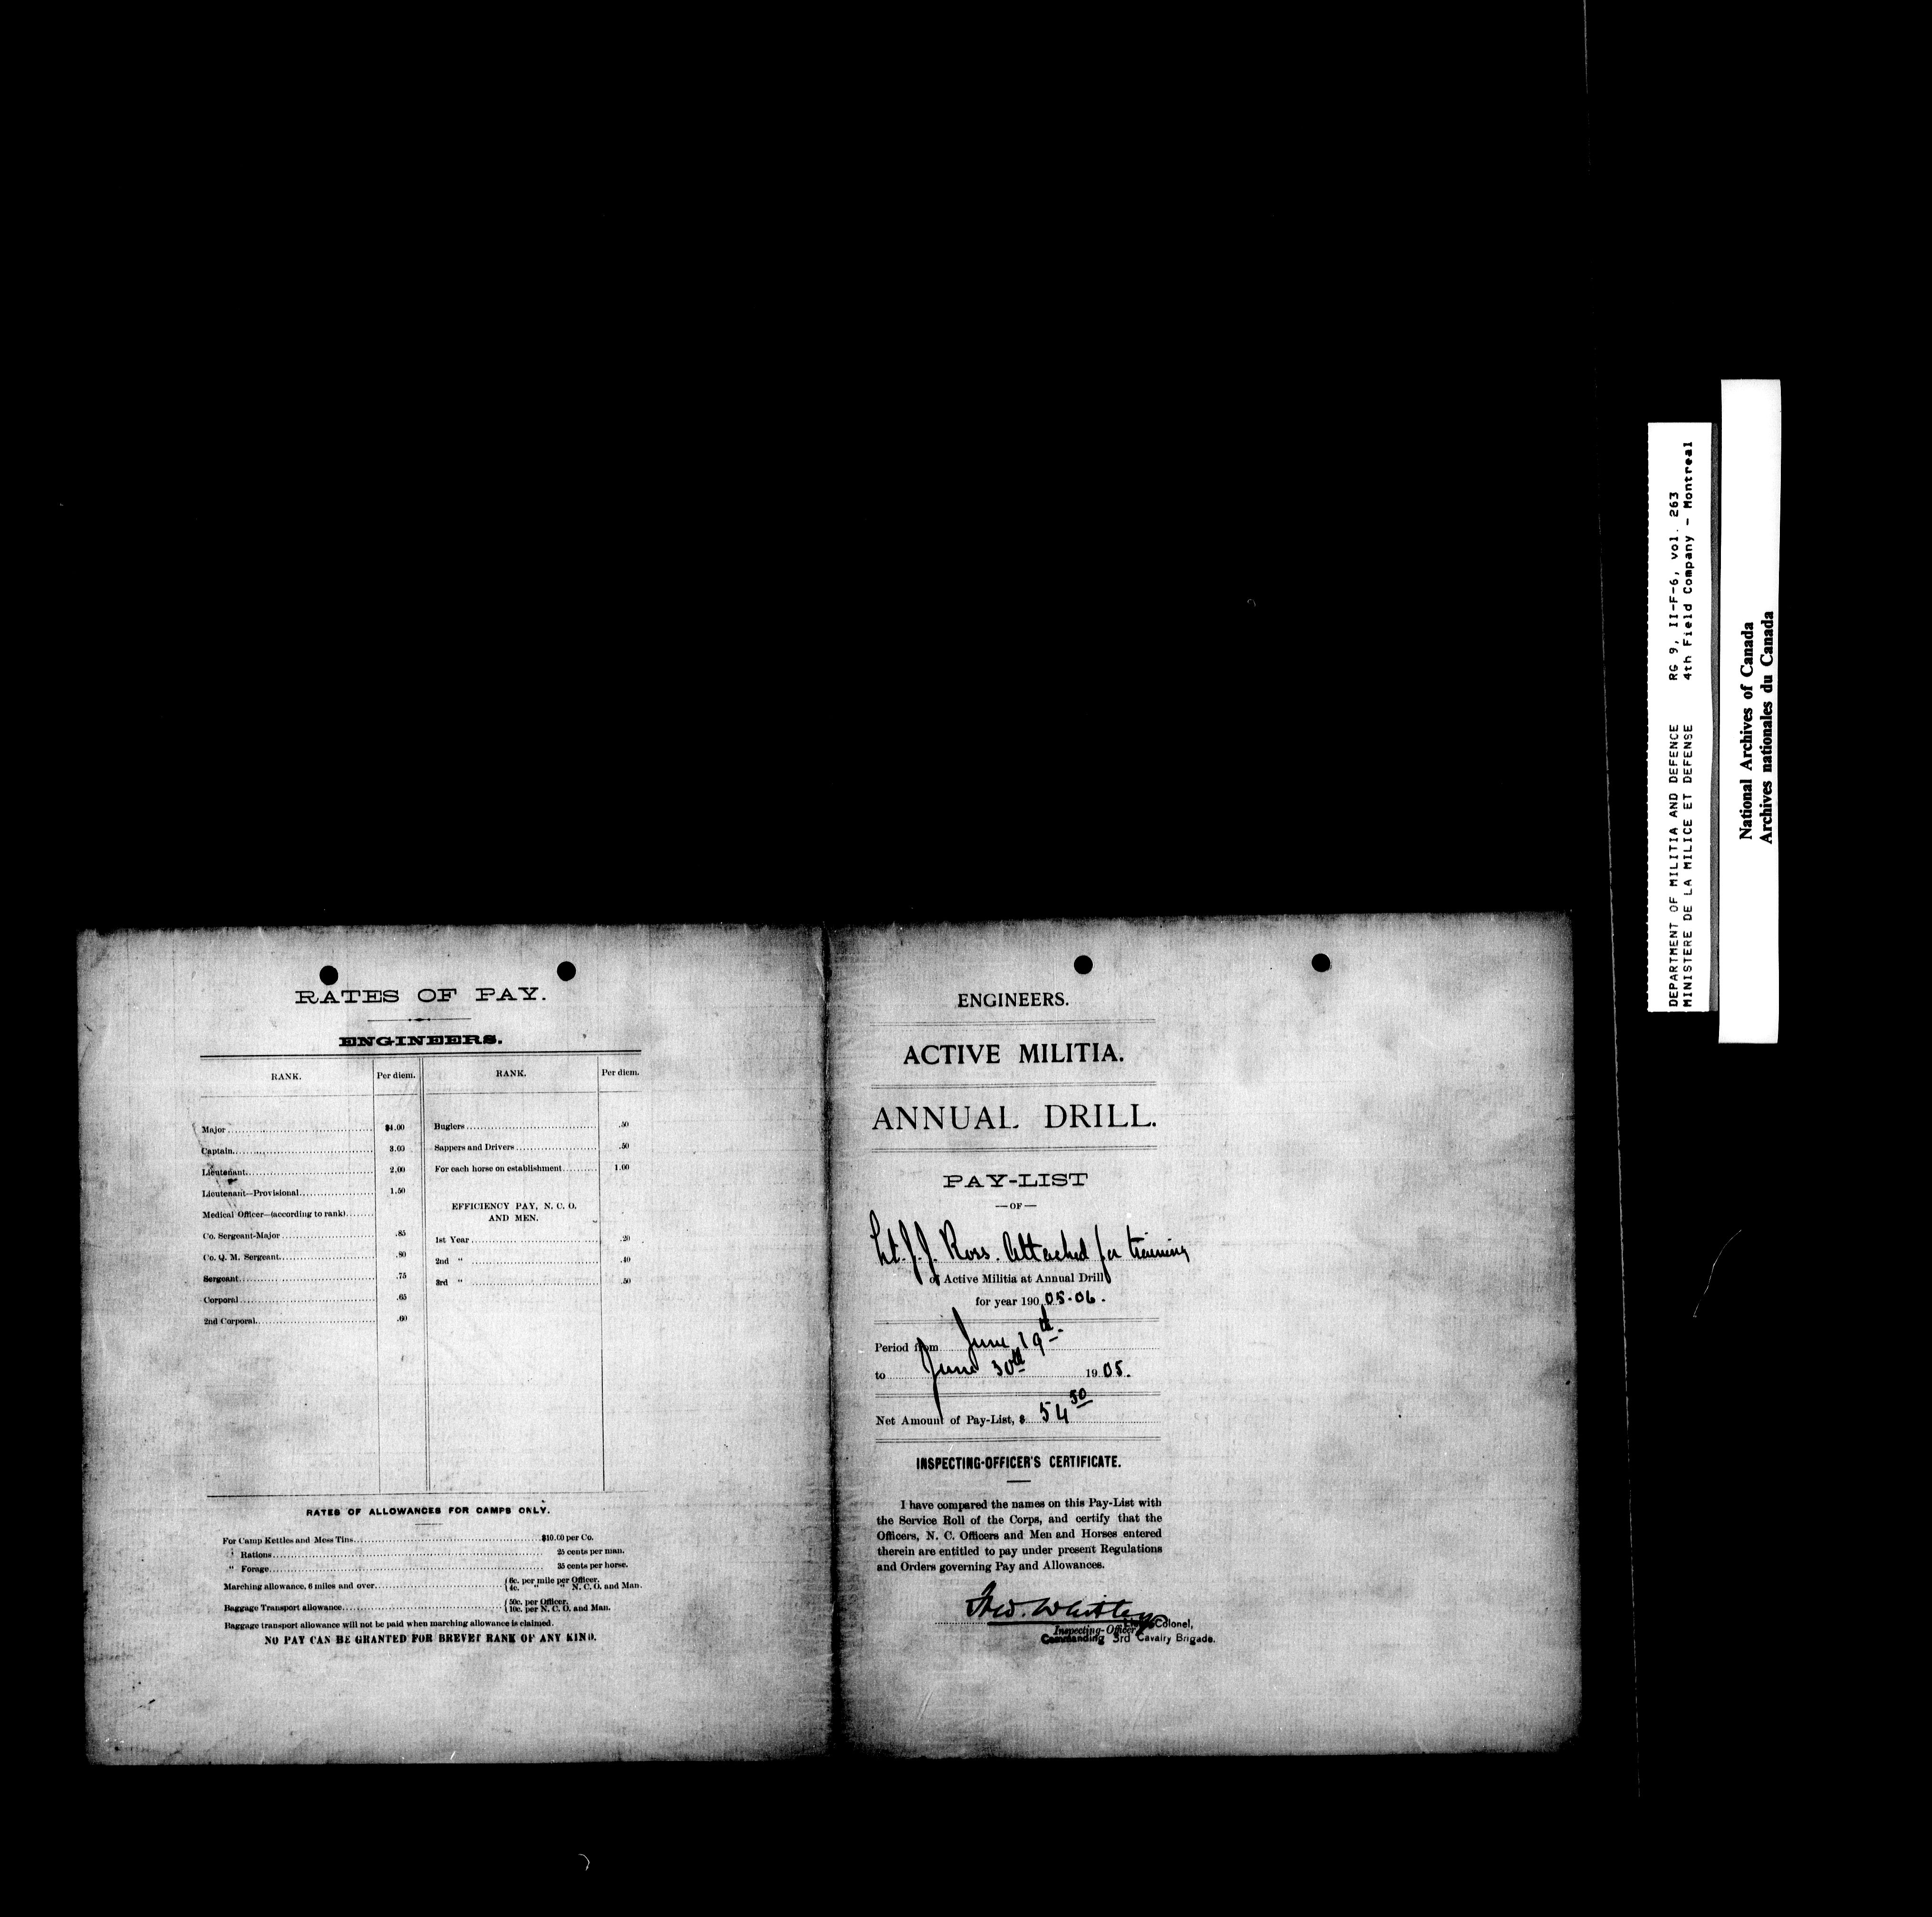 RATES OF PAY.
ENGINEERS.
RANK. Per diem. RANK. Per diem.
Major $4.00 Buglers .50
Captain 3.00 Sappers and Drivers .50
Lieutenant 2.00 For each horse on establishment 1.00
Lieutenant—Provisional 1.50
Medical Officer—(according to rank) EFFICIENCY PAY, N. C. O.
AND MEN.
Co. Sergeant-Major .85 1st Year .20
Co. Q. M. Sergeant .80 2nd " .40
Sergeant .75 3rd " .50
Corporal .65
2nd Corporal .60
RATES OF ALLOWANCES FOR CAMPS ONLY.
For Camp Kettles and Mess Tins $10.00 per Co.
" Rations 25 cents per man.
" Forage 35 cents per horse.
Marching allowance, 6 miles and over { 6c. per mile per Officer.
4c. " " N. C. O. and Man.
Baggage Transport allowance { 50c. per Officer.
10c. per N. C. O. and Man.
Baggage transport allowance will not be paid when marching allowance is claimed.
NO PAY CAN BE GRANTED FOR BREVET RANK OF ANY KIND.
ENGINEERS.
ACTIVE MILITIA.
ANNUAL DRILL.
PAY-LIST
—OF—
Lt. J. J. Ross. Attached for training
of Active Militia at Annual Drill
for year 190 05-06.
Period from June 19th.
to June 30th 1905.
Net Amount of Pay-List, $ 54 50
INSPECTING-OFFICER'S CERTIFICATE.
I have compared the names on this Pay-List with
the Service Roll of the Corps, and certify that the
Officers, N. C. Officers and Men and Horses entered
therein are entitled to pay under present Regulations
and Orders governing Pay and Allowances.
Fred. Whitley
Colonel,
Inspecting-Officer
Commanding 3rd Cavalry Brigade.
DEPARTMENT OF MILITIA AND DEFENCE RG 9, II-F-6, vol. 263
MINISTERE DE LA MILICE ET DEFENSE 4th Field Company - Montreal
National Archives of Canada
Archives nationales du Canada